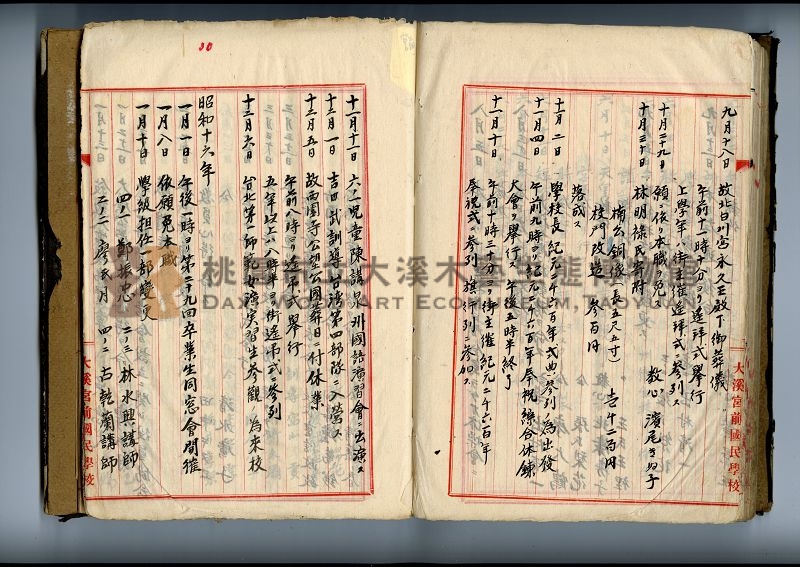 九月十八日 故北白川宮永久王殿下御葬儀
午前十一時十分ヨリ遙拜式擧行
上學年ハ街主催遙拜式ニ参列ス
十月二十九日 願ニ依リ本職ヲ免ス 教心 濱尾きぬ子
十月三十日 林明條氏寄附
楠公銅像(長五尺五寸) 壱千二百円
校門改造 参百円
落成ス
十一月二日 學校長紀元二千六百年式典ニ参列ノ為出發
十一月四日 午前九時ヨリ紀元二千六百年奉祝綜合体鍊
大會ヲ擧行ス 午後五時半終了
十一月十日 午前十時三十分ヨリ街主催紀元二千六百年
奉祝式ニ参列 旗行列ニ参加ス
大溪宮前國民學校
30
十二月十一日 六ノ一兒童陳講泉州國語演習會ニ出演ス
十二月一日 吉田武訓導台湾第四部隊ニ入營ス
十二月五日 故西園寺公望公國葬日ニ付休業
午前八時ヨリ遙弔式擧行
五年以上ハ八時半ヨリ街遙弔式ニ参列
十二月六日 台北第一師範女演實習生参觀ノ為來校
昭和十六年
一月一日 午後一時ヨリ第二十九回卒業生同窓會開催
一月八日 依願免本職
一月十日 學級担任一部變更
四ノ一 鄭振忠 二ノ三 林水興講師
二ノ二 廖氏月 四ノ二 古乾蘭講師
大溪宮前國民學校
桃園市立大溪木藝生態博物館
Daxi Wood Art Ecomuseum, Taoyuan